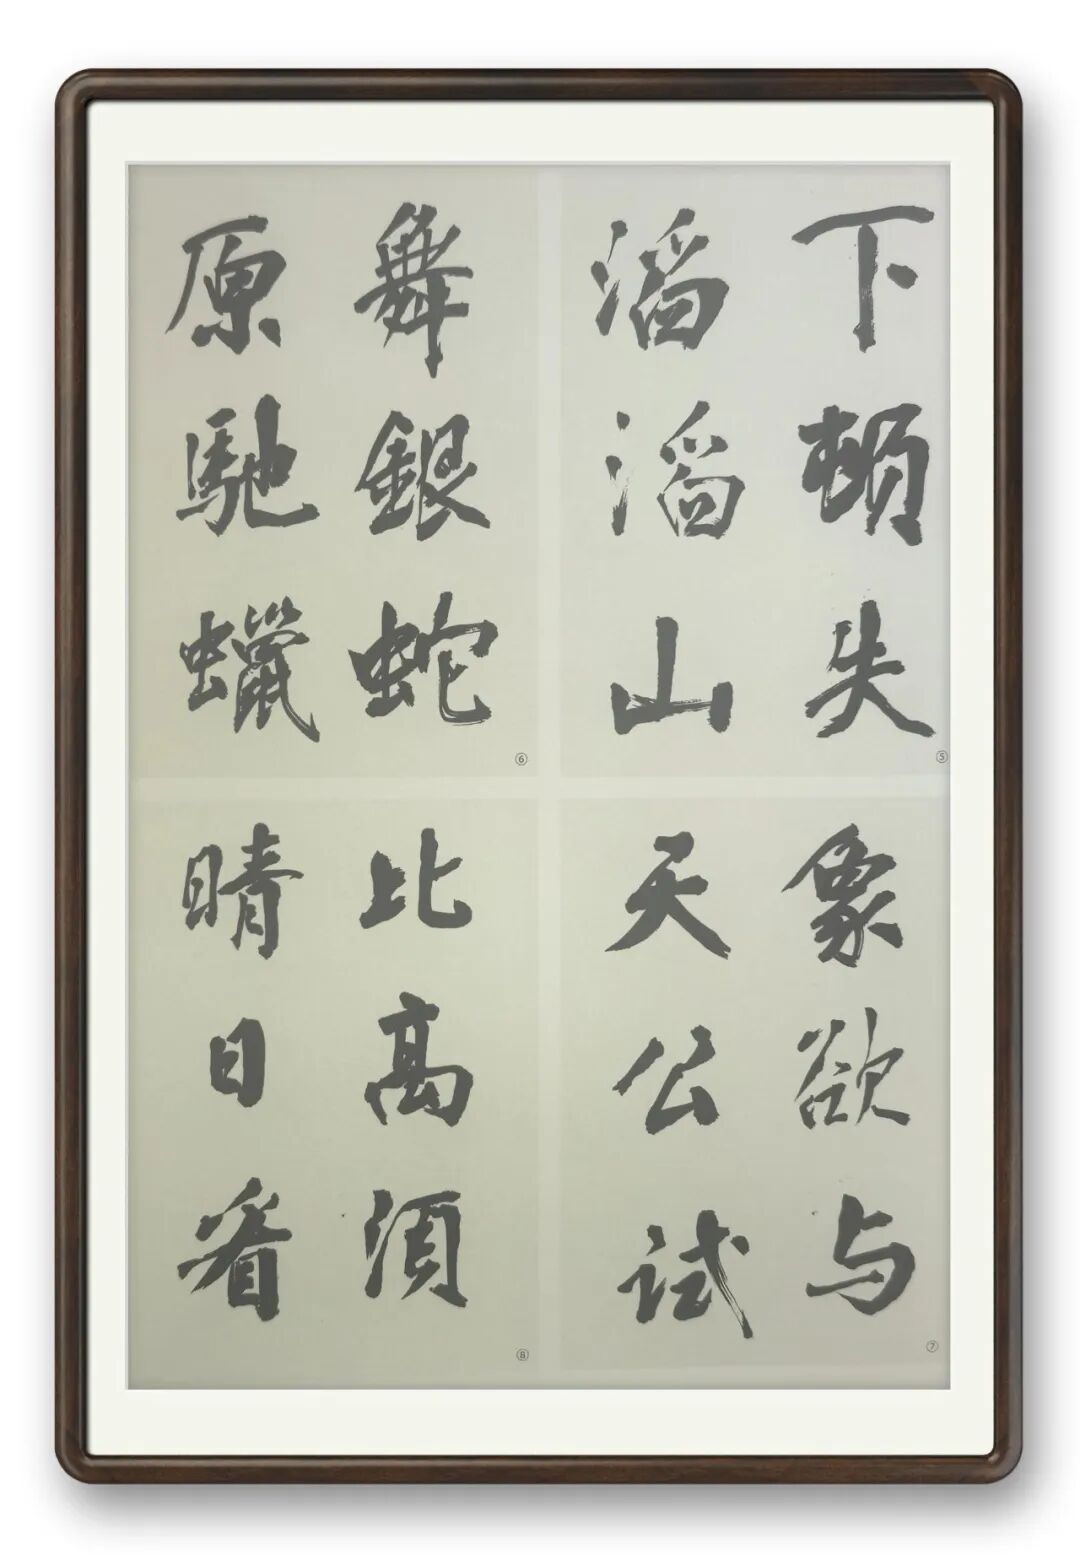 下頓失
滔滔山
⑤
舞銀蛇
原馳蠟
⑥
象欲与
天公试
⑦
比高須
晴日看
⑧